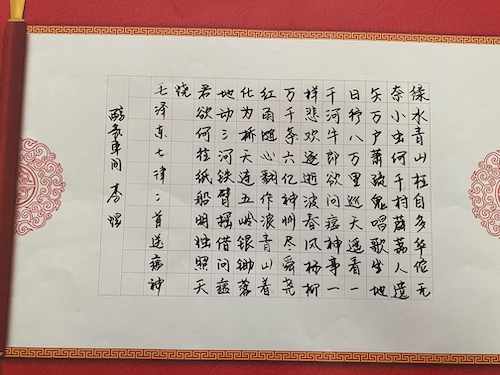 绿水青山枉自多华佗无
奈小虫何千村薜荔人遗
矢万户萧疏鬼唱歌坐地
日行八万里巡天遥看一
千河牛郎欲问瘟神事一
样悲欢逐逝波春风杨柳
万千条六亿神州尽舜尧
红雨随心翻作浪青山着
化为桥天连五岭银锄落
地动三河铁臂摇借问瘟
君欲何往纸船明烛照天
烧
毛泽东七律二首送瘟神
车间